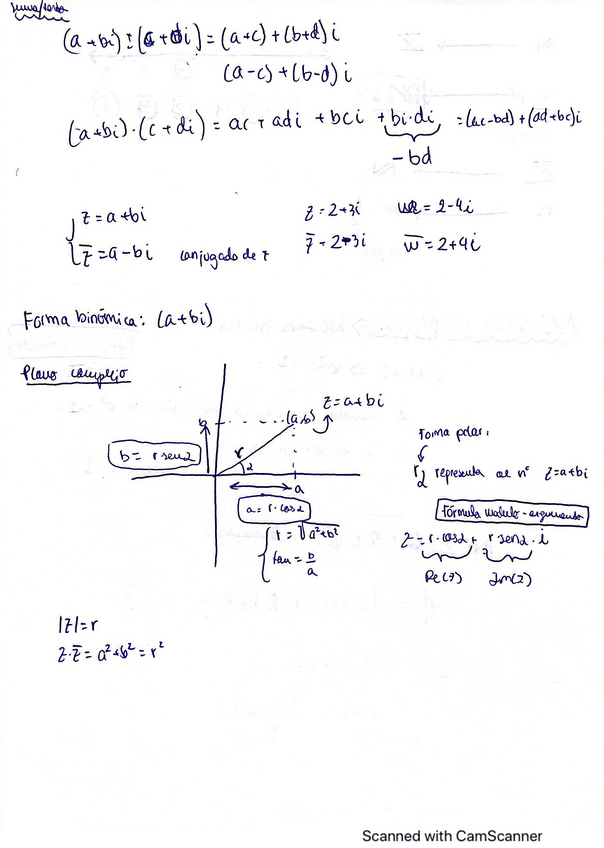 suma/resta
(a+bi) ± (c+di) = (a+c) + (b+d) i
(a-c) + (b-d) i
(a+bi)·(c+di) = ac + adi + bci + bi·di = (ac-bd) + (ad+bc)i
-bd
z = a+bi
z̄ = a-bi conjugado de z
z = 2+3i w = 2-4i
z̄ = 2-3i w̄ = 2+4i
Forma binómica: (a+bi)
Plano complejo
z = a+bi
b (a,b)
b = r sen α
r
α
a
a = r·cos α
r = √a²+b²
tan = b/a
Forma polar:
r α representa al nº z=a+bi
Fórmula módulo-argumento
z = r·cos α + r sen α·i
Re(z) Im(z)
|z| = r
z·z̄ = a²+b² = r²
Scanned with CamScanner